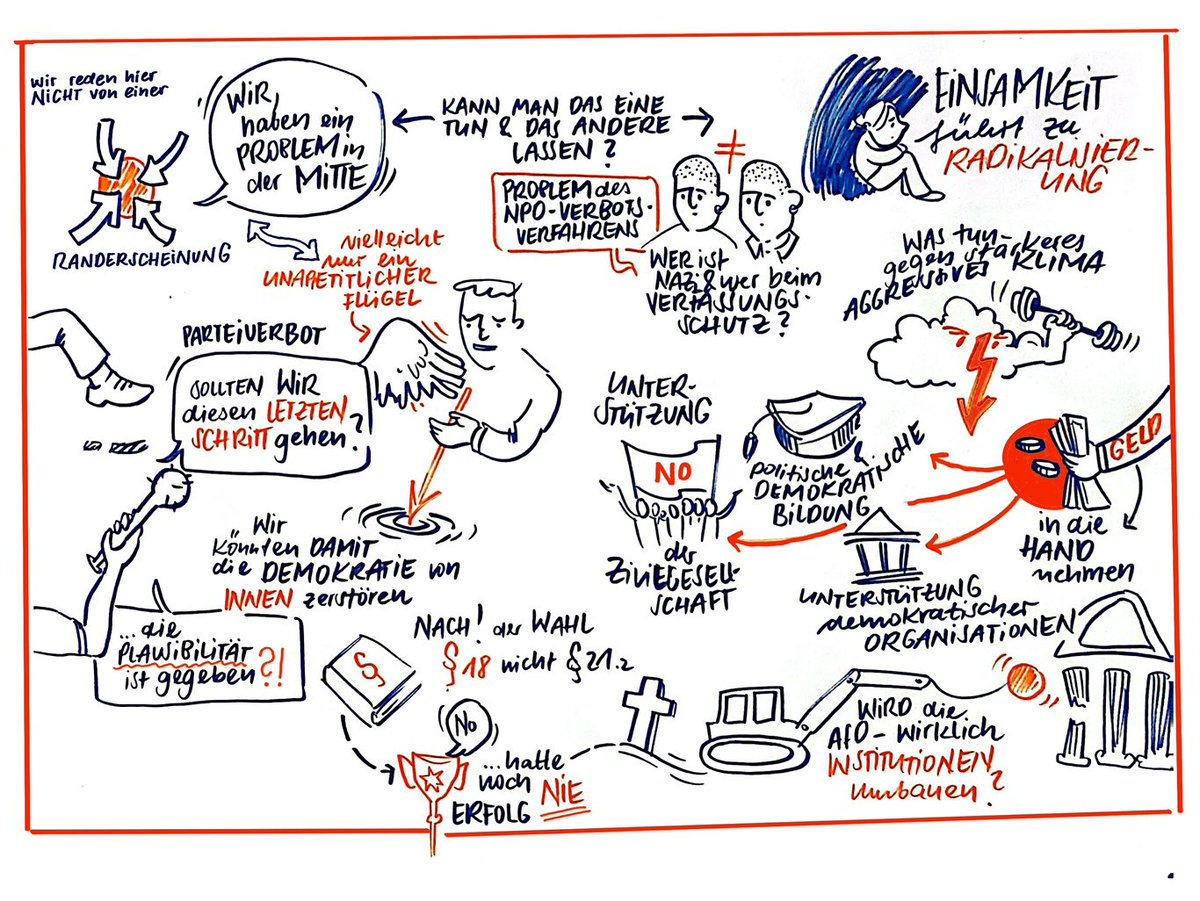 wir reden hier
NICHT von einer
RANDERSCHEINUNG
WIR
haben ein
PROBLEM in
der MITTE
KANN MAN DAS EINE
TUN & DAS ANDERE
LASSEN?
PROBLEM des
NPD-VERBOTS-
VERFAHRENS
≠
WER ist
NAZI & wer beim
VERFASSUNGS-
SCHUTZ?
EINSAMKEIT
führt zu
RADIKALISIER-
UNG
vielleicht
nur ein
UNAPETITLICHER
FLÜGEL
PARTEIVERBOT
SOLLTEN WIR
diesen LETZTEN
SCHRITT gehen?
Wir
könnten DAMIT
die DEMOKRATIE von
INNEN zerstören
...die
PLAUSIBILITÄT
ist gegeben?!
WAS tun
gegen stärkeres
AGGRESSIVES KLIMA
UNTER-
STÜTZUNG
NO
der
ZIVILGESELL-
SCHAFT
politische &
DEMOKRATISCHE
BILDUNG
GELD
in die
HAND
nehmen
UNTERSTÜTZUNG
demokratischer
ORGANISATIONEN
§
NACH! der WAHL
§18 nicht §21.2
NO
...hatte
noch NIE
ERFOLG
WIRD die
AfD - wirklich
INSTITUTIONEN
umbauen?